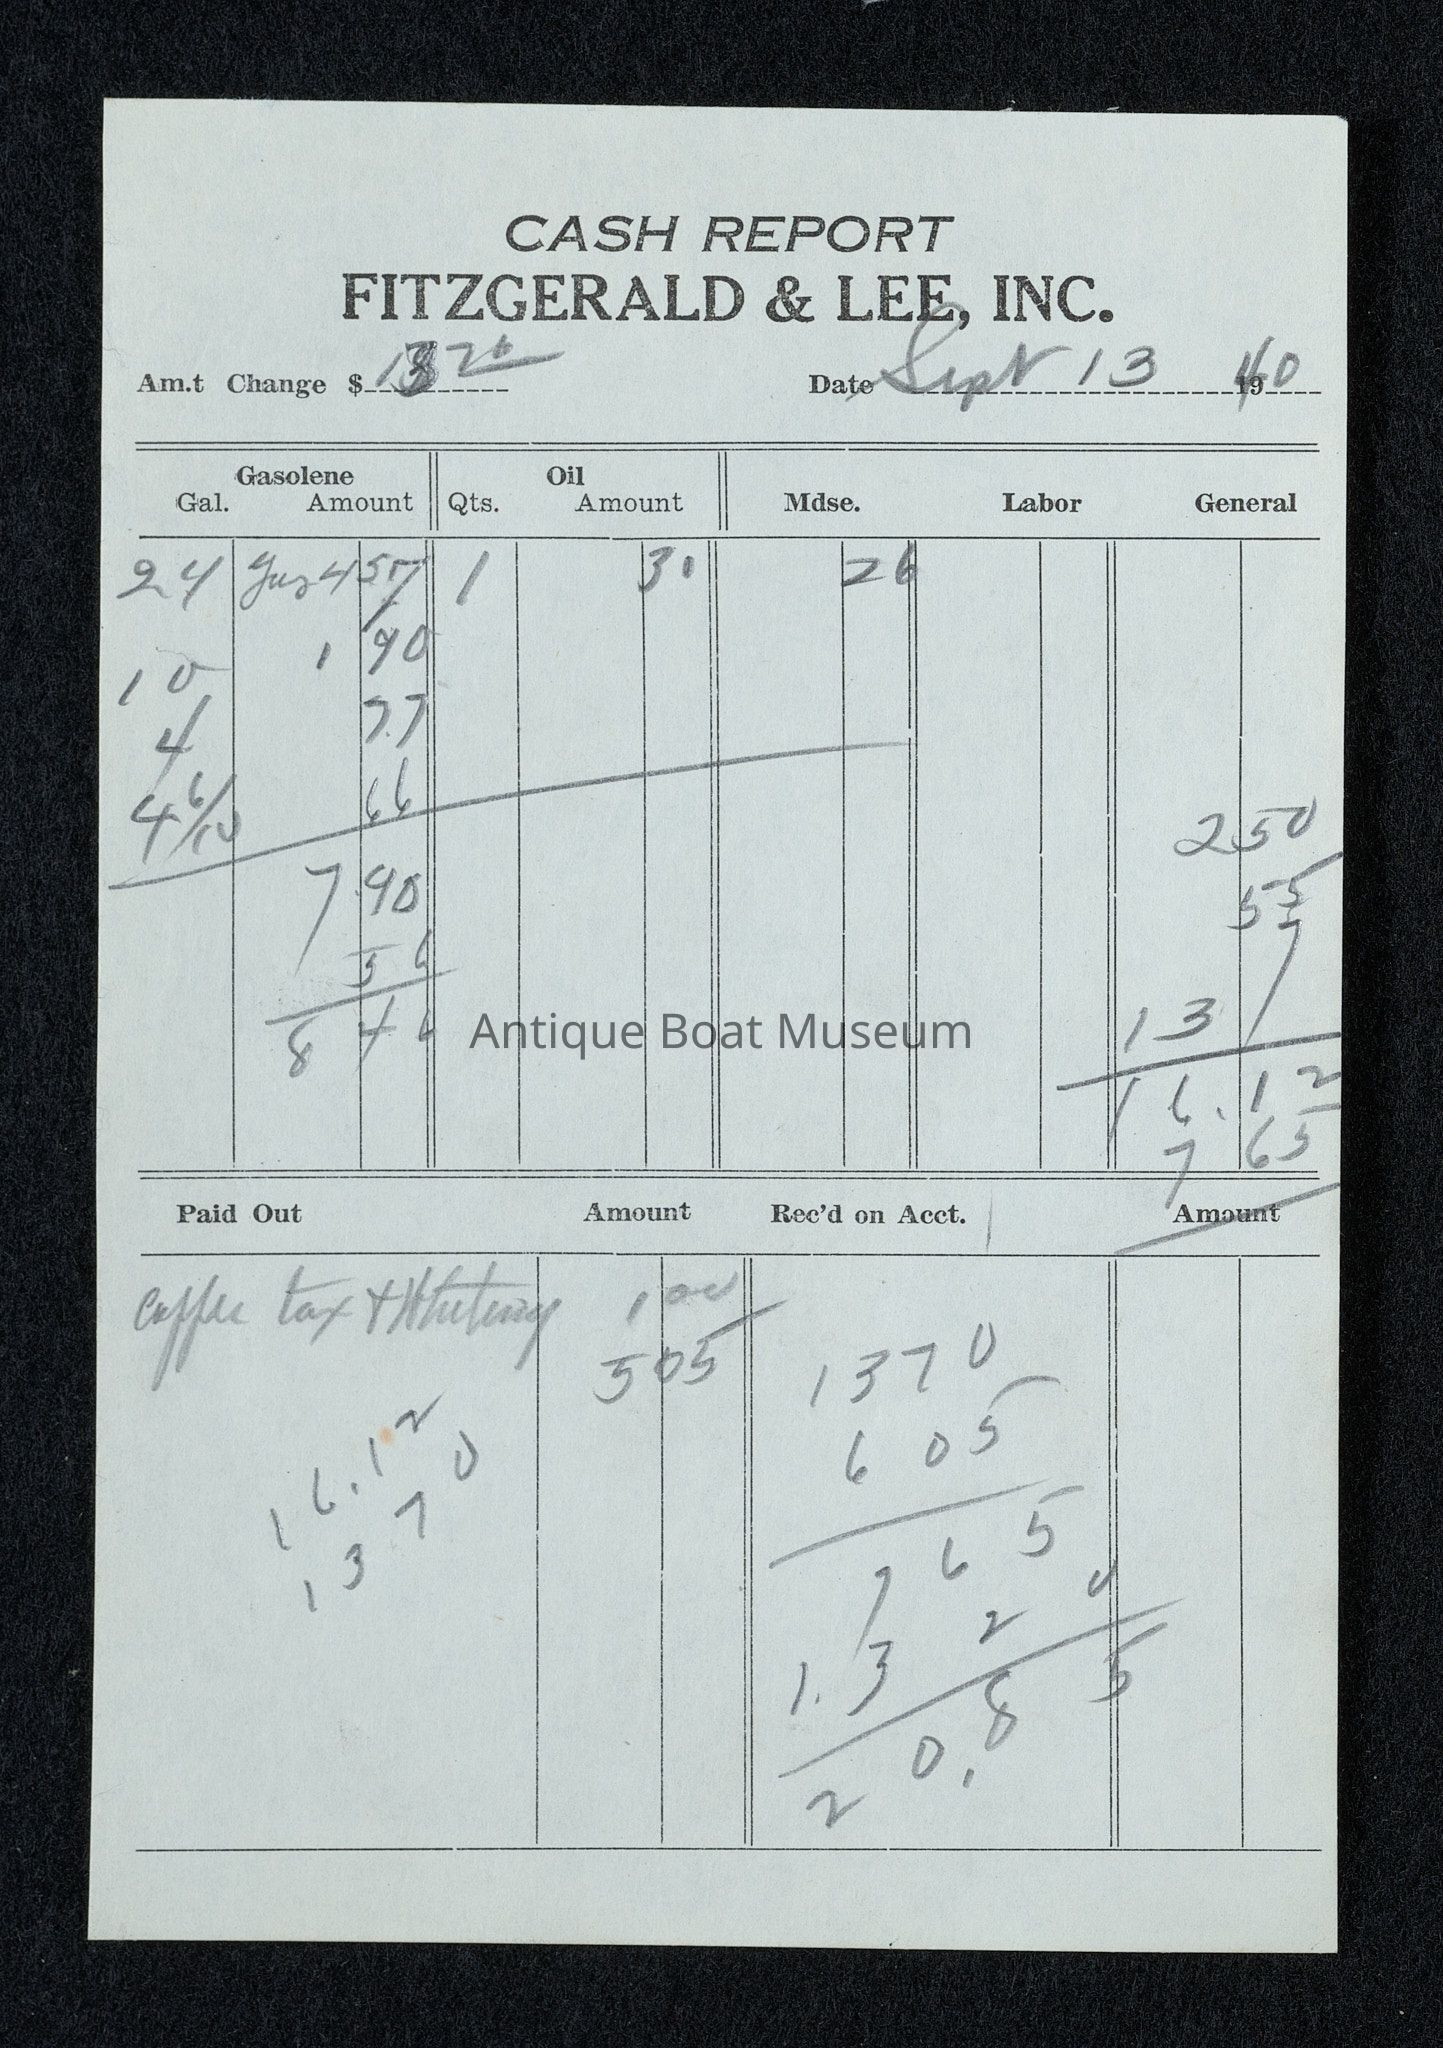 CASH REPORT
FITZGERALD & LEE, INC.
Am.t Change $ 13 20
Date Sept 13 1940
Gasolene Oil
Gal. Amount Qts. Amount Mdse. Labor General
24 Gas 4 57 1 30 26
10 1 90
4 77
4 6/10 66
7.90
56
8 46
2 50
55
13 7
16.12
7 65
Antique Boat Museum
Paid Out Amount Rec'd on Acct. Amount
tax + 1 00
5 05
16.12
13 70
13 70
6 05
7 65
13 20
20.85